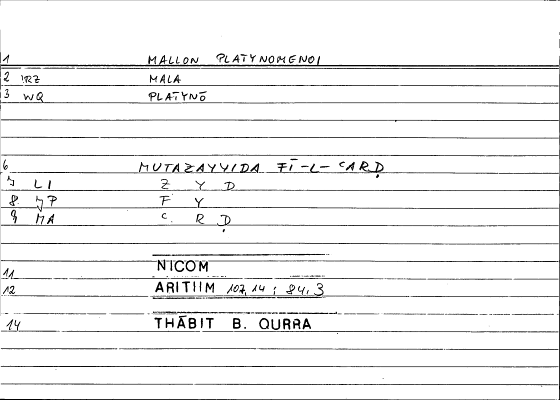 1 MALLON PLATYNOMENOI
2 !RZ MALA
3 WQ PLATYNŌ
6 MUTAZAYYIDA FĪ-L-ʿARḌ
LI Z Y D
8 F Y
9 MA ʿ R Ḍ
NICOM
11
12 ARITIIM 107,14 ; 84,3
14 THĀBIT B. QURRA